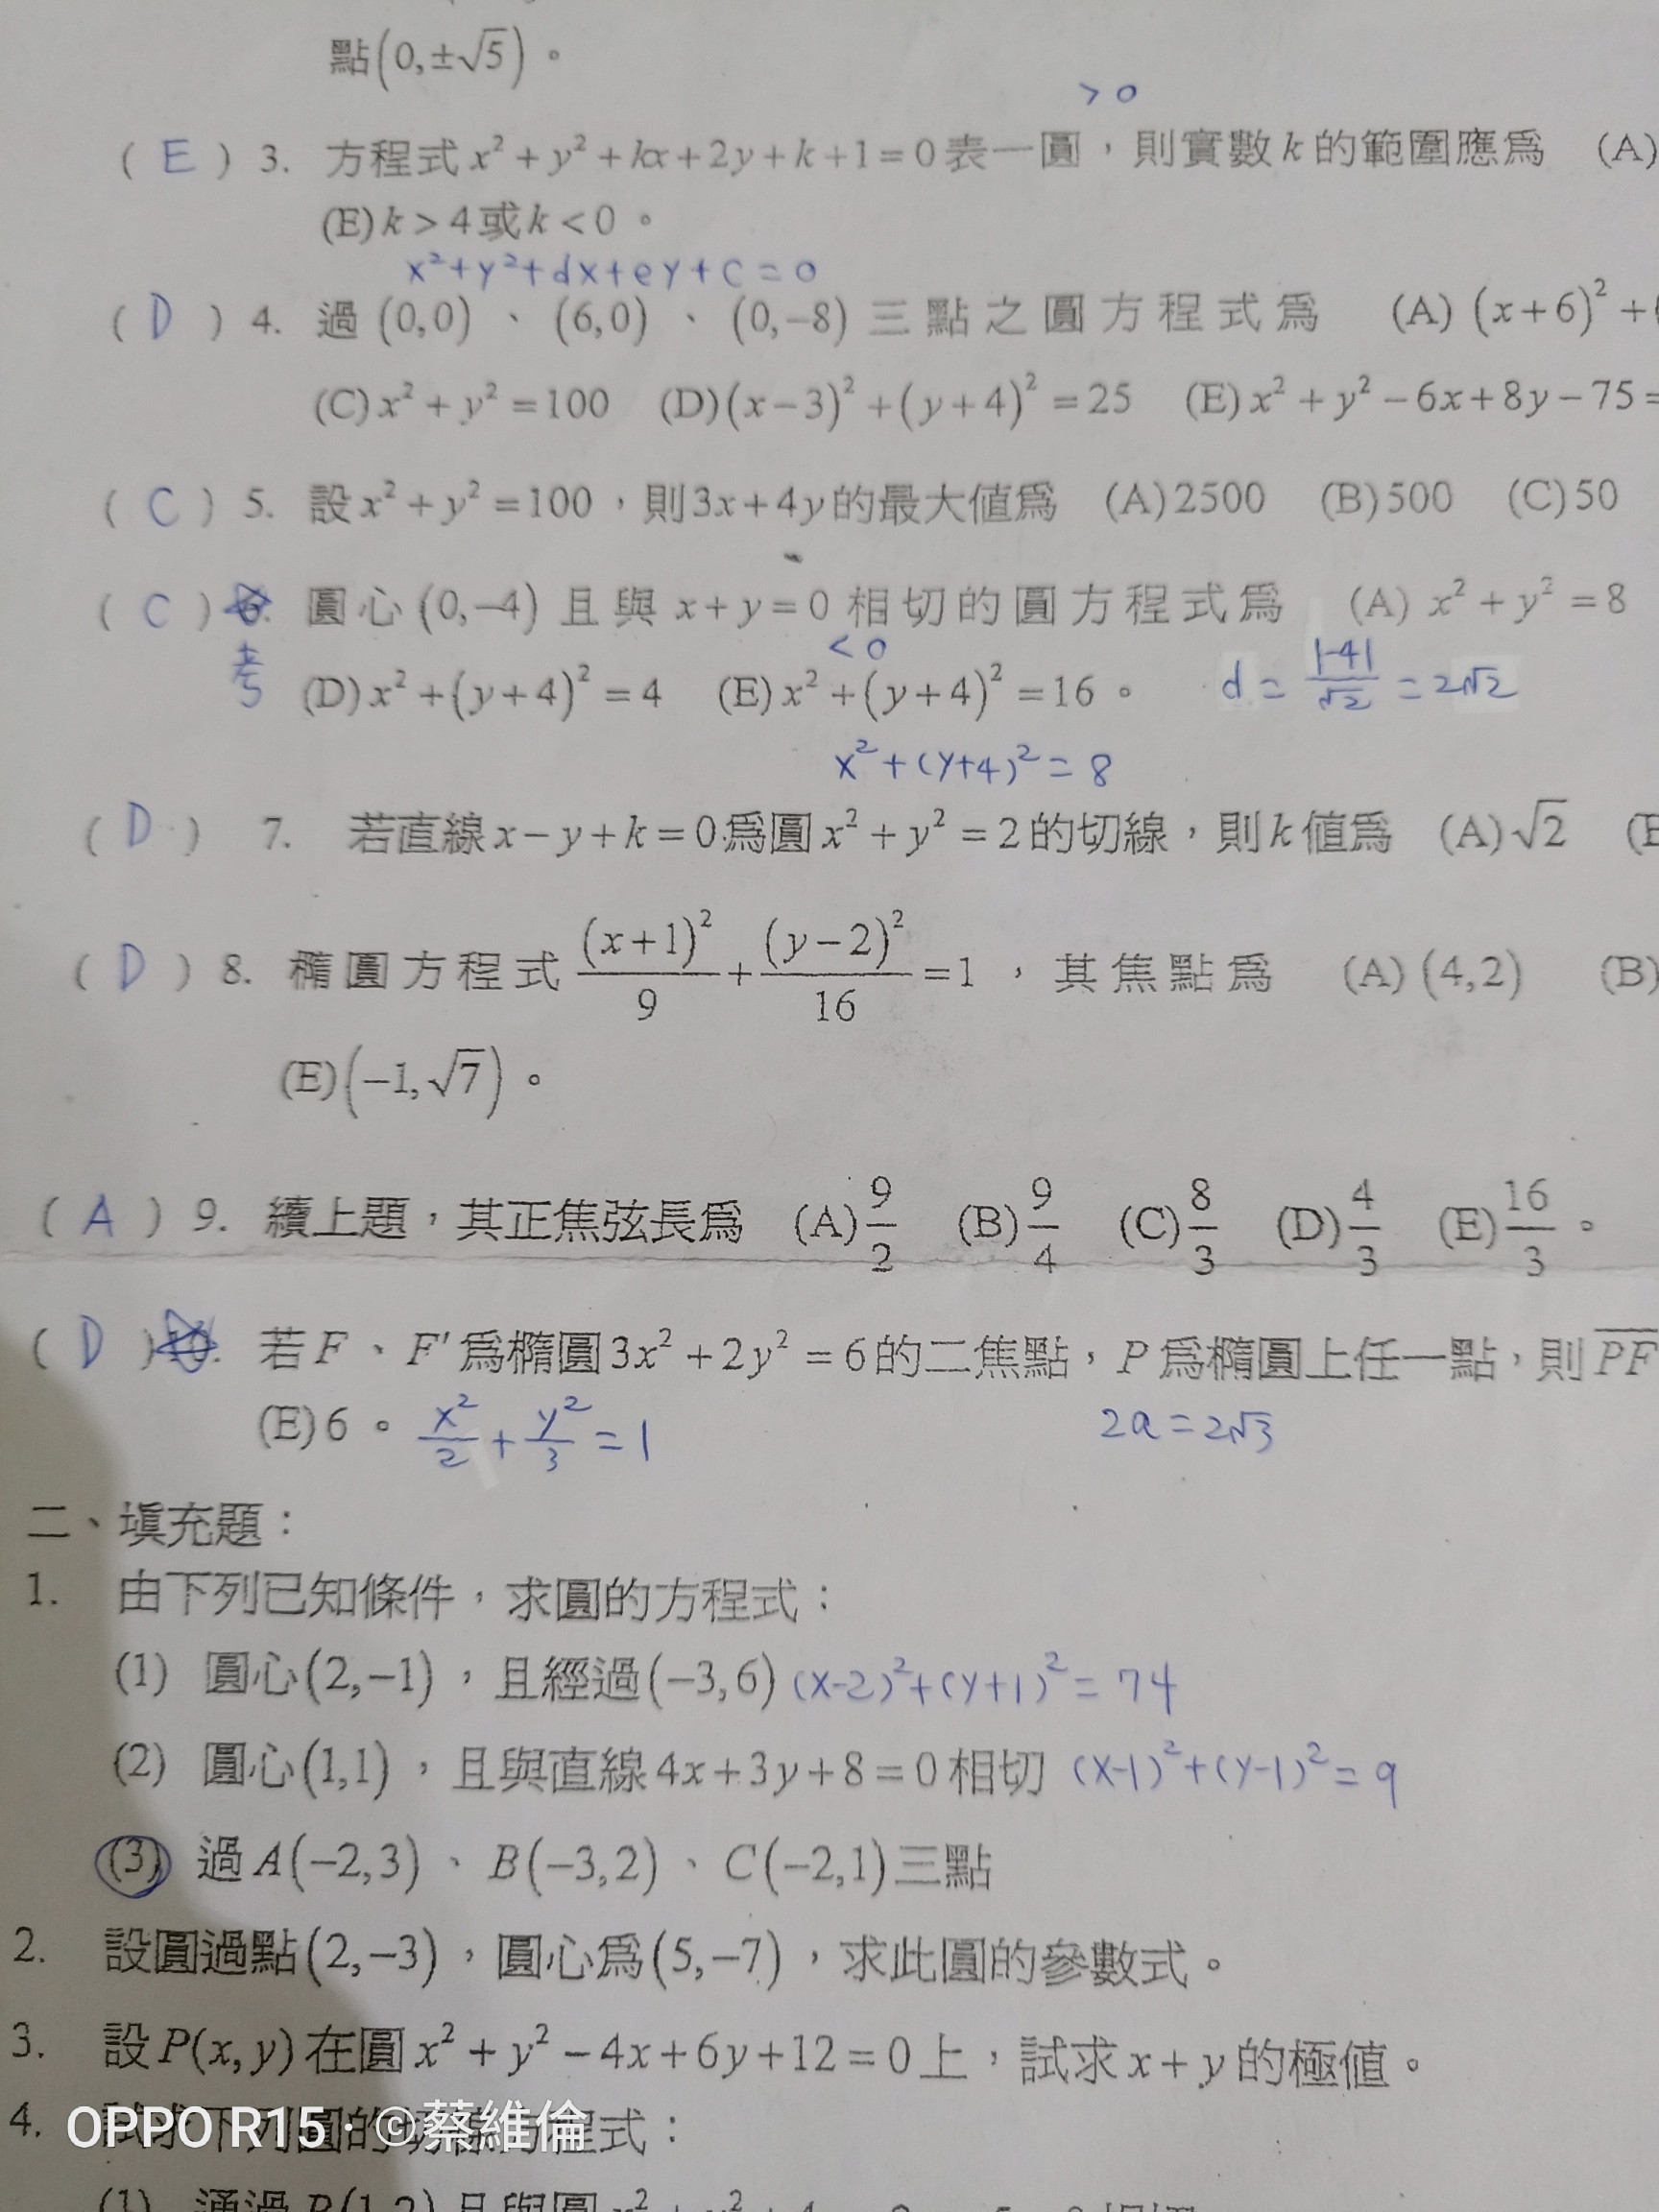 點(0,±√5)。
>0
( E ) 3. 方程式 x²+y²+kx+2y+k+1=0 表一圓，則實數 k 的範圍應為 (A)
(E) k>4 或 k<0。
x²+y²+dx+ey+c=0
( D ) 4. 過 (0,0)、(6,0)、(0,−8) 三點之圓方程式為 (A) (x+6)²+
(C) x²+y²=100 (D) (x−3)²+(y+4)²=25 (E) x²+y²−6x+8y−75=
( C ) 5. 設 x²+y²=100，則 3x+4y 的最大值為 (A) 2500 (B) 500 (C) 50
( C ) 6. 圓心 (0,−4) 且與 x+y=0 相切的圓方程式為 (A) x²+y²=8
<0
考 (D) x²+(y+4)²=4 (E) x²+(y+4)²=16。 d=|-4|/√2=2√2
x²+(y+4)²=8
( D ) 7. 若直線 x−y+k=0 為圓 x²+y²=2 的切線，則 k 值為 (A) √2 (B
( D ) 8. 橢圓方程式 (x+1)²/9+(y−2)²/16=1，其焦點為 (A) (4,2) (B)
(E) (−1,√7)。
( A ) 9. 續上題，其正焦弦長為 (A) 9/2 (B) 9/4 (C) 8/3 (D) 4/3 (E) 16/3。
( D ) 10. 若 F、F' 為橢圓 3x²+2y²=6 的二焦點，P 為橢圓上任一點，則 PF
(E) 6。 x²/2+y²/3=1 2a=2√3
二、填充題：
1. 由下列已知條件，求圓的方程式：
(1) 圓心(2,−1)，且經過(−3,6) (x-2)²+(y+1)²=74
(2) 圓心(1,1)，且與直線 4x+3y+8=0 相切 (x-1)²+(y-1)²=9
(3) 過 A(−2,3)、B(−3,2)、C(−2,1) 三點
2. 設圓過點(2,−3)，圓心為(5,−7)，求此圓的參數式。
3. 設 P(x,y) 在圓 x²+y²−4x+6y+12=0 上，試求 x+y 的極值。
4. 試求下列圓的切線方程式：
OPPO R15 · ©蔡維倫
(1) 通過 P(1,2) 且與圓